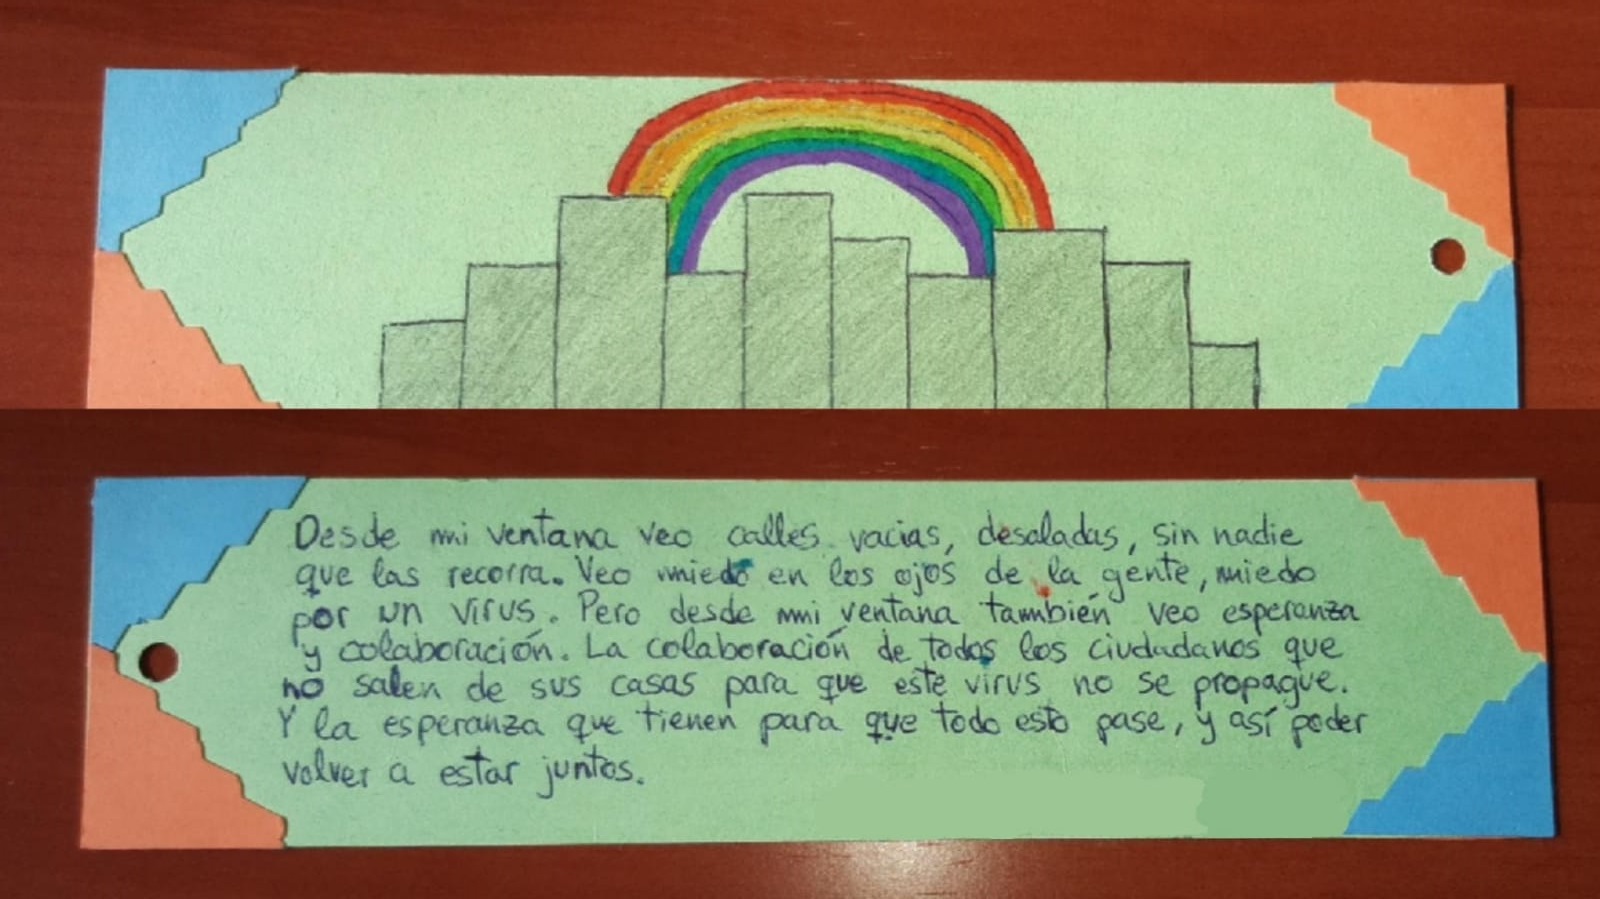 Desde mi ventana veo calles vacias, desaladas, sin nadie
que las recorra. Veo miedo en los ojos de la gente, miedo
por un virus. Pero desde mi ventana también veo esperanza
y colaboración. La colaboración de todos los ciudadanos que
no salen de sus casas para que este virus no se propague.
Y la esperanza que tienen para que todo esto pase, y así poder
volver a estar juntos.